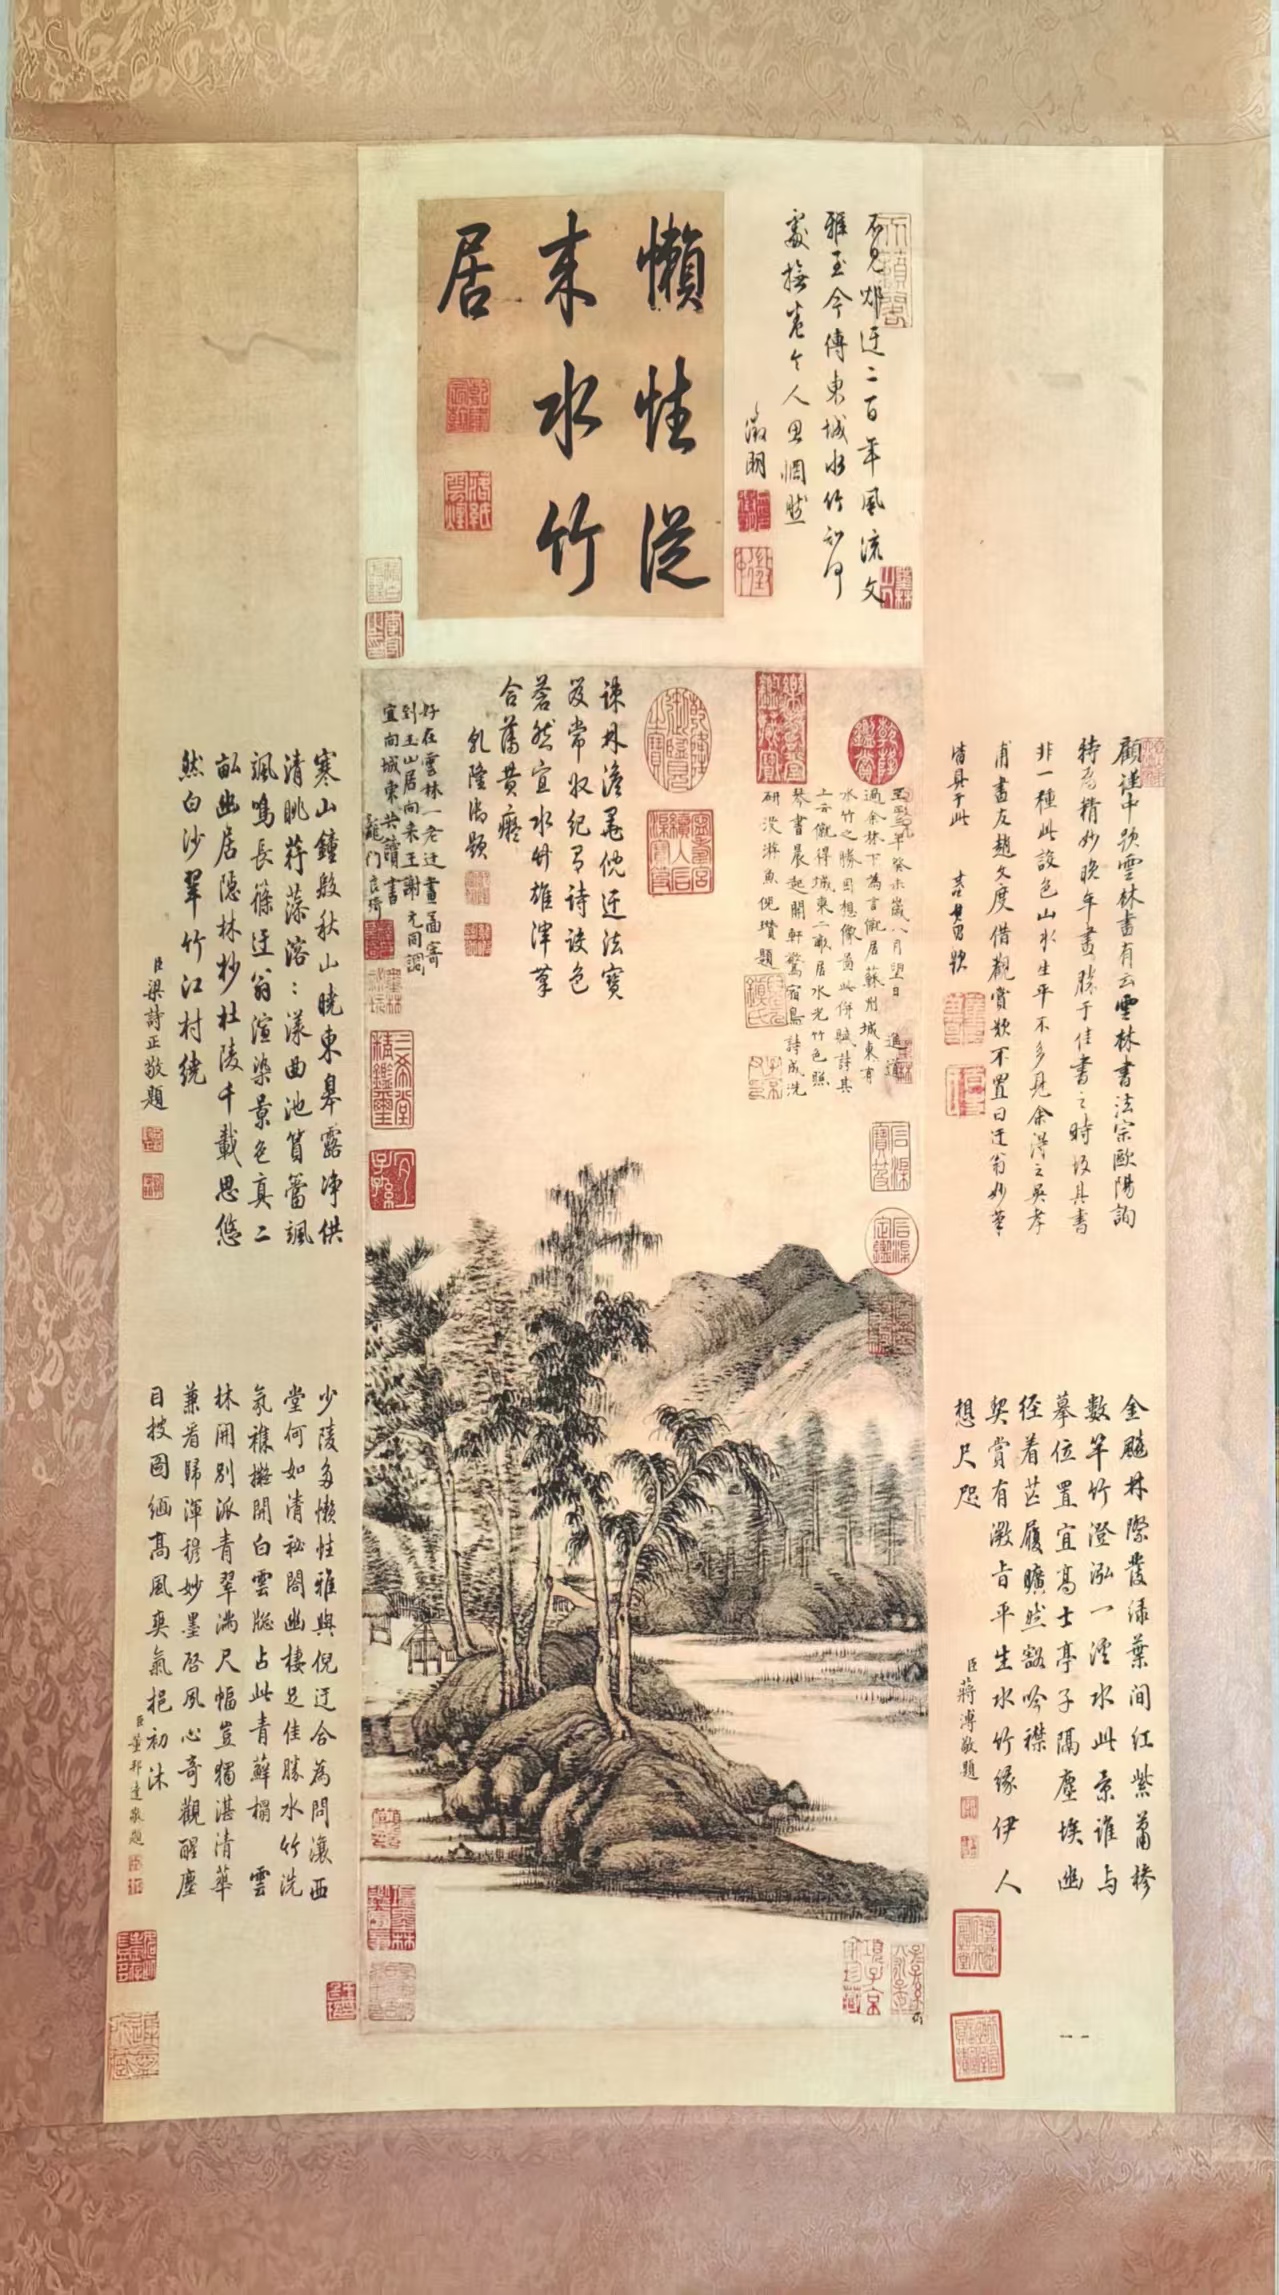 懶性從
来水竹
居
不見邺迂二百年風流文
雅至今傳東城水竹知何
處撫卷令人思惘然
徵明
疎林澹靄倪迂法寶
笈常收紀者詩設色
蒼然宜水竹雄渾筆
合藩黄癡
乾隆御題
至正三年癸未歲八月望日進道
過余林下為言僦居蘇州城東有
水竹之勝因想像圖此併賦詩其
上云僦得城東二畝居水光竹色照
琴書晨起開軒驚宿鳥詩成洗
研没游魚倪瓚題
好在雲林一老迂畫圖寄
到玉山居向来王謝尤同調
宜向城東共讀書
龍門良琦
顧謹中題雲林畫有云雲林書法宗歐陽詢
特為精妙晚年畫勝于佳書之時故其書
非一種此設色山水生平不多見余得之吴孝
甫畫友趙文度借觀賞歎不置曰迂翁妙筆
備具于此
寒山鐘殷秋山曉東皋露净供
清眺荇藻溶溶漾曲池篔簹颯
颯鳴長篠迂翁渲染景色真二
畝幽居隱林杪杜陵千載思悠
然白沙翠竹江村繞
臣梁詩正敬題
金飈林際發緑葉間紅紫蕭椮
數竿竹澄泓一溪水此景誰与
摹位置宜高士亭子隔塵埃幽
徑着芒屨曠然豁吟襟
契賞有澂旨平生水竹緣伊人
想尺咫
臣蔣溥敬題
少陵多懶性雅與倪迂合為問瀼西
堂何如清祕閣幽棲足佳勝水竹洗
氛雜擬開白雲牕占此青蘚榻雲
林開别派青翠滿尺幅豈獨湛清華
兼看歸渾穆妙墨啓風心奇觀醒塵
目披圖緬高風爽氣挹初沐
臣董邦達敬題